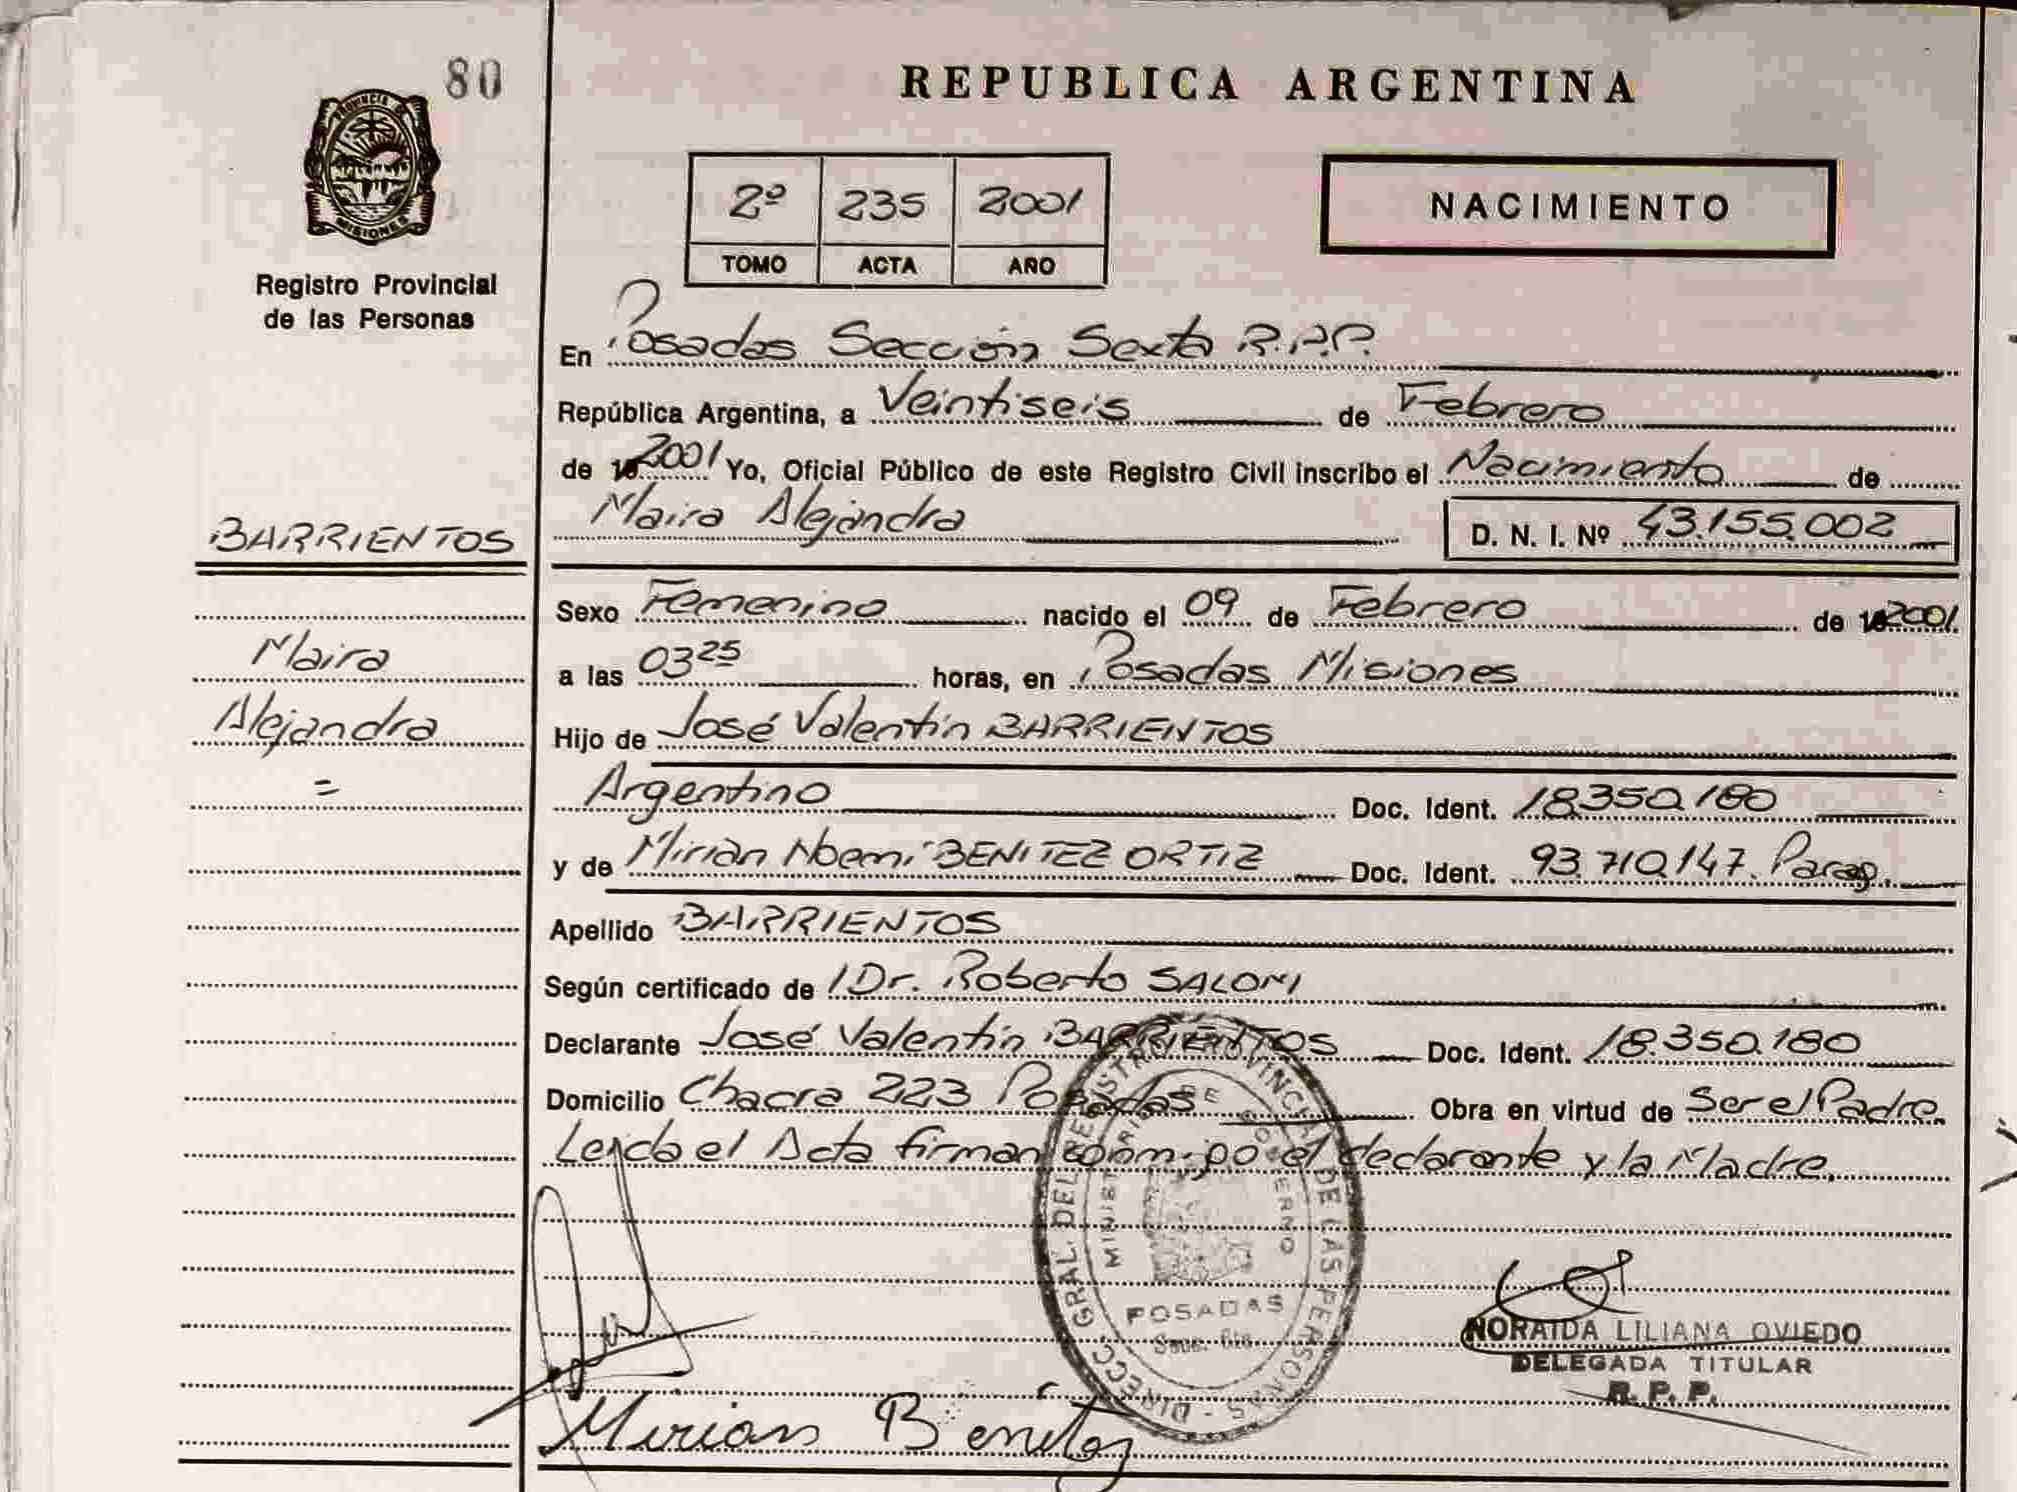 80
REPUBLICA ARGENTINA
PROVINCIA
MISIONES
2º 235 2001
TOMO ACTA AÑO
NACIMIENTO
Registro Provincial
de las Personas
En Posadas Sección Sexta R.P.P.
República Argentina, a Veintiseis de Febrero
de 2001 Yo, Oficial Público de este Registro Civil inscribo el Nacimiento de
Maira Alejandra D. N. I. Nº 43.155.002
BARRIENTOS
Sexo Femenino nacido el 09 de Febrero de 2001.
Maira
a las 03 25 horas, en Posadas Misiones
Alejandra
Hijo de José Valentín BARRIENTOS
=
Argentino Doc. Ident. 18.350.180
y de Mirian Noemi BENITEZ ORTIZ Doc. Ident. 93.710.147. Parag.
Apellido BARRIENTOS
Según certificado de Dr. Roberto SALOM
Declarante José Valentín BARRIENTOS Doc. Ident. 18.350.180
Domicilio Chacra 223 Posadas Obra en virtud de Ser el Padre.
Leida el Acta firman conmigo el declarante y la Madre.
DIRECC. GRAL. DEL REGISTRO PROVINCIAL DE LAS PERSONAS -
MINISTERIO DE GOBIERNO
POSADAS
Secc. 6ta.
NORAIDA LILIANA OVIEDO
DELEGADA TITULAR
R. P. P.
Mirian Benitez